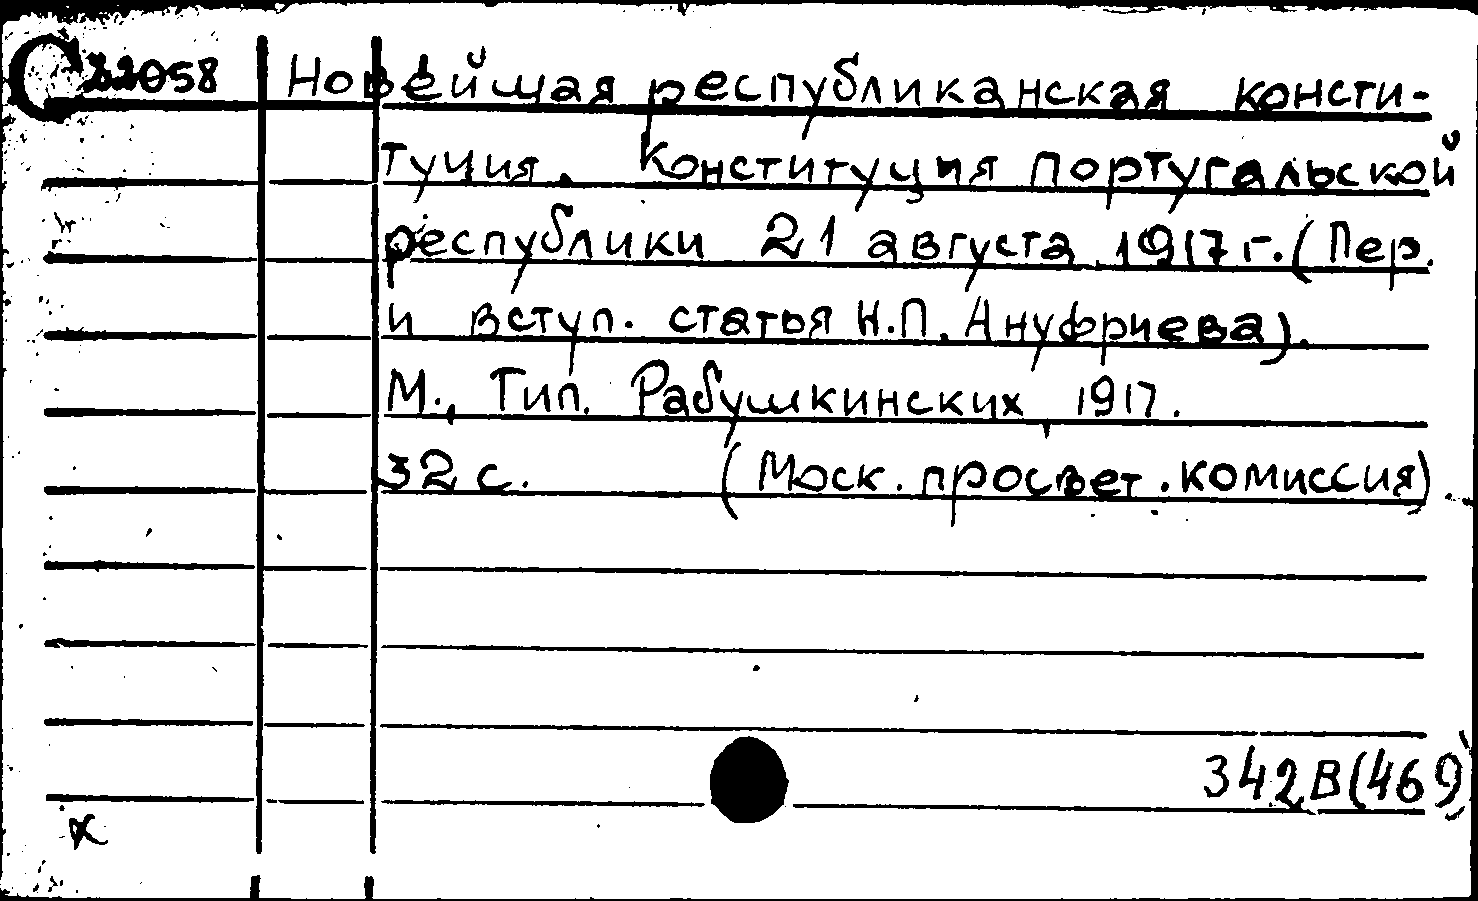 С 22058 Новейшая республиканская консти-
туция. Конституция португальской
республики 21 августа 1917 г. (Пер.
и вступ. статья Н.П. Ануфриева).
М., Тип. Рабушкинских, 1917.
32 с. (Моск. просвет. комиссия).
342В(469)